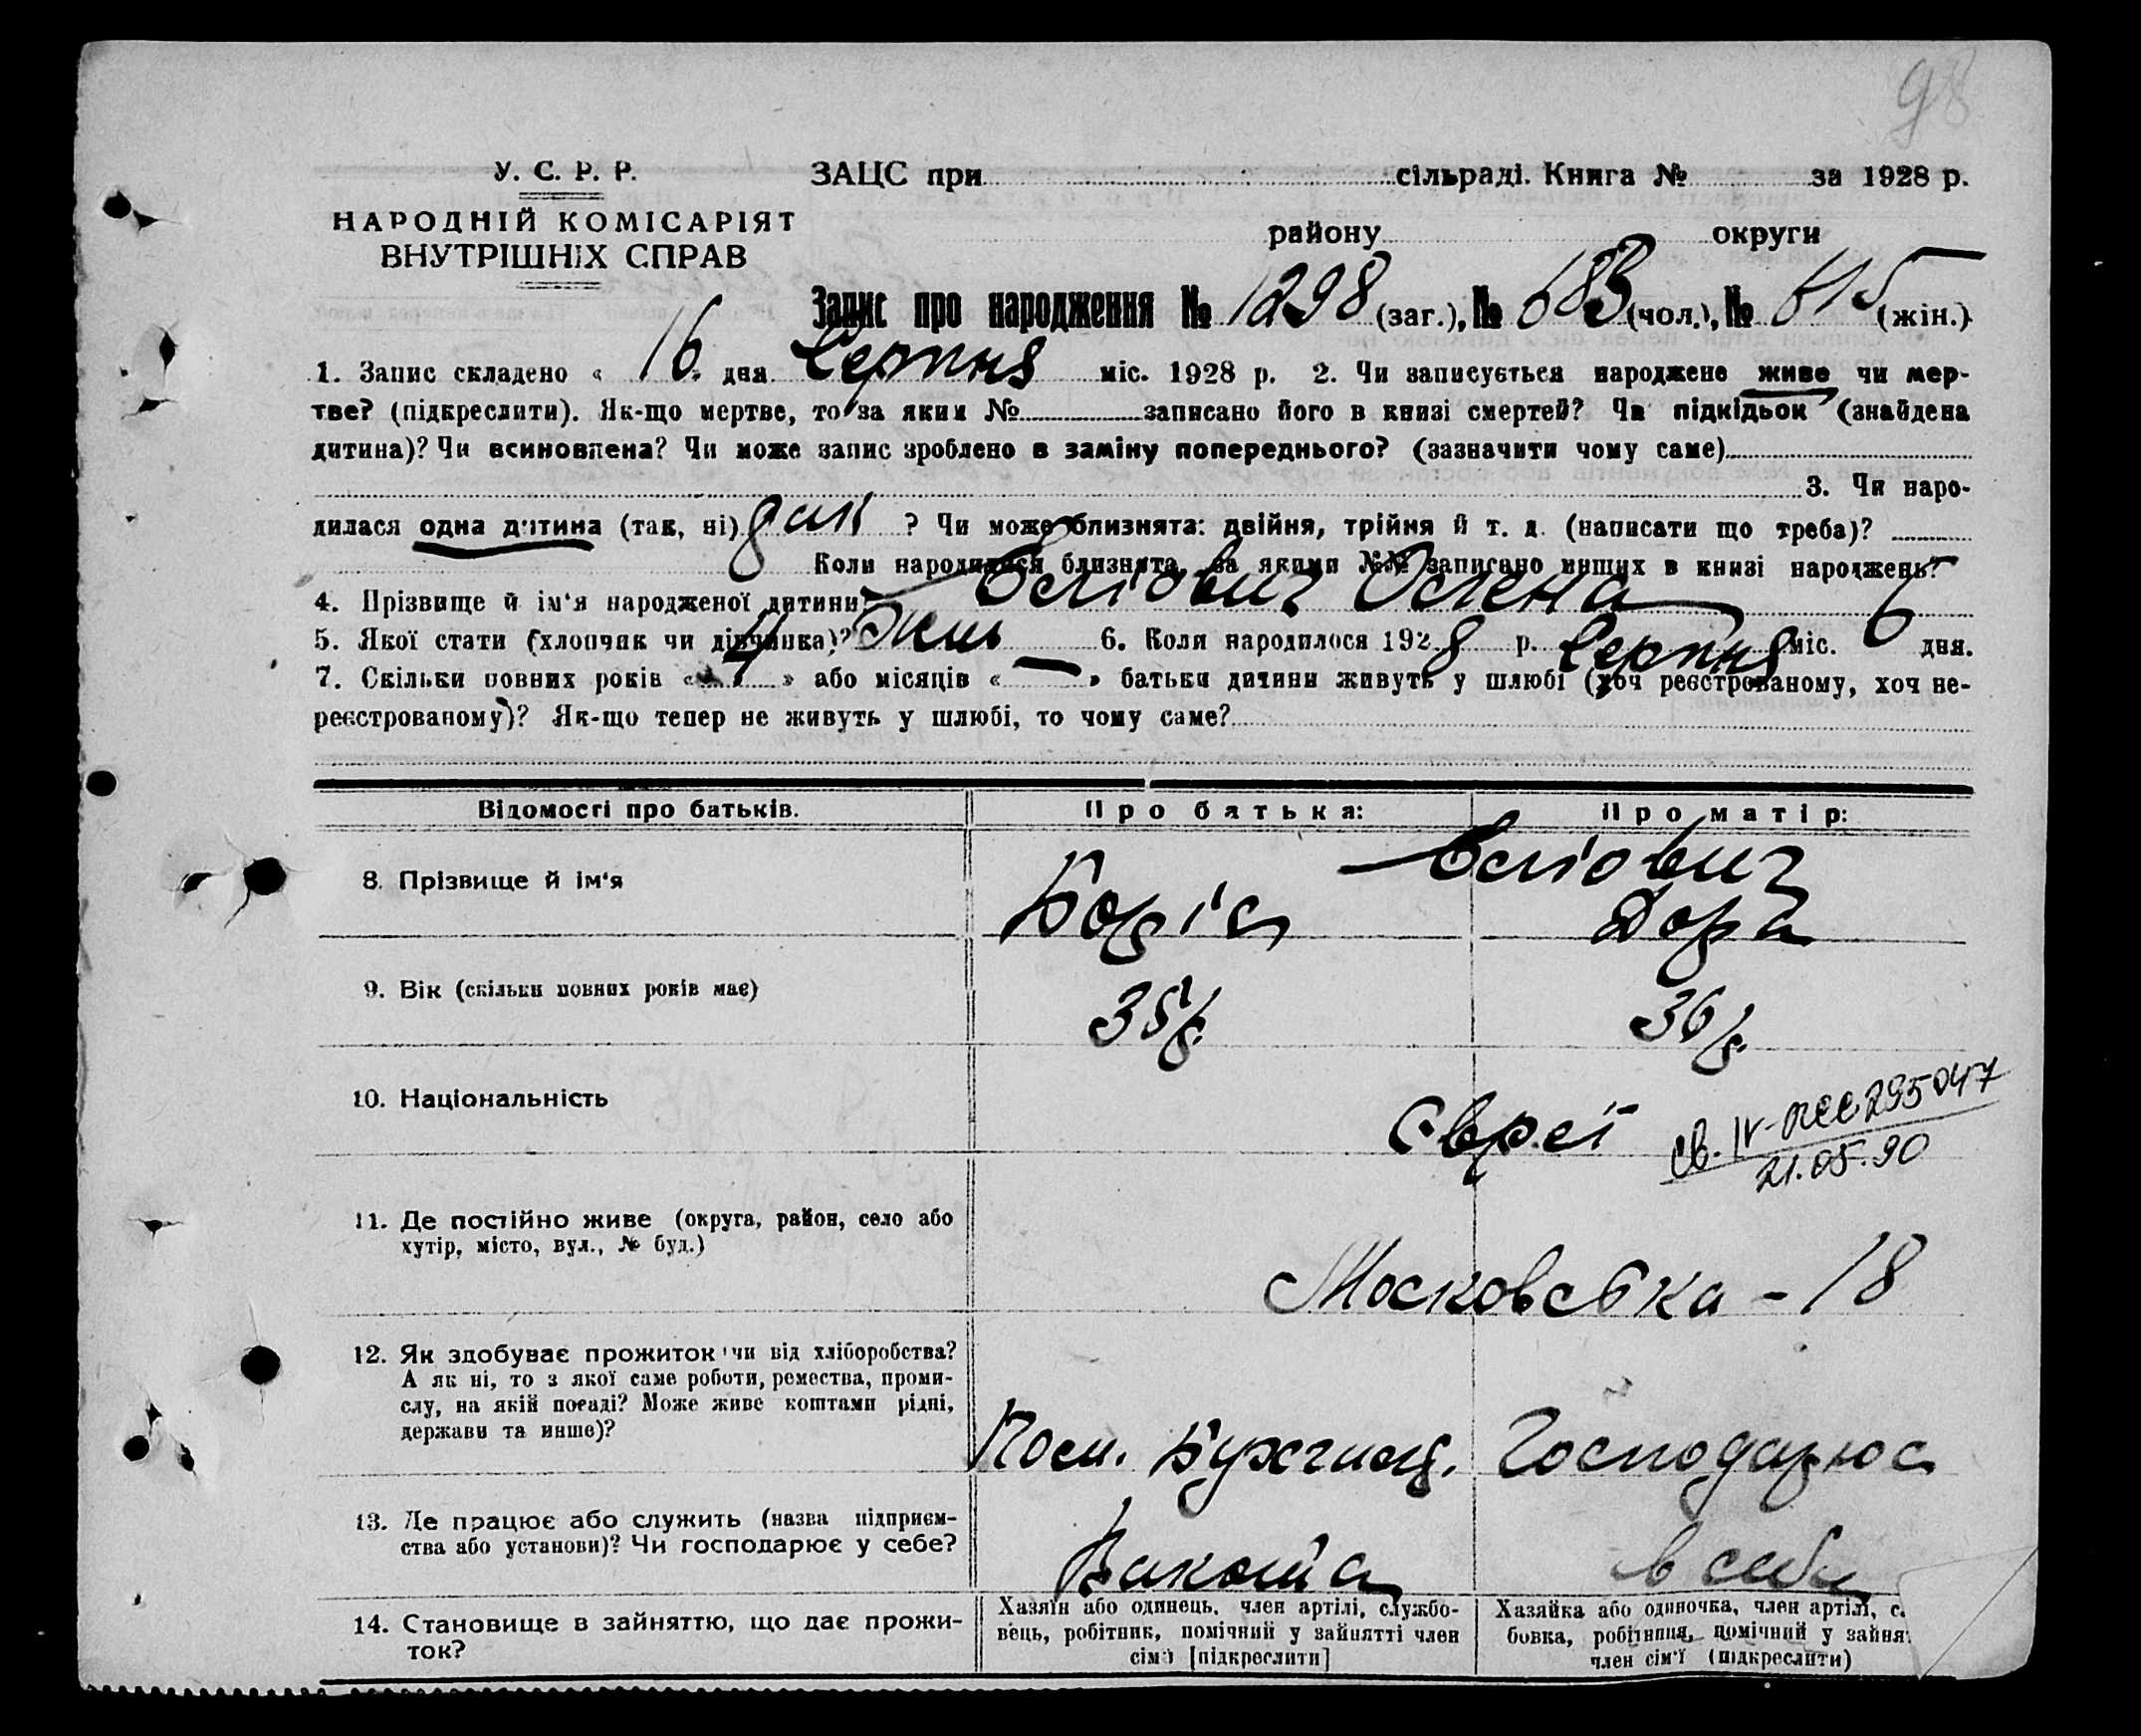 98
У. С. Р. Р.
НАРОДНІЙ КОМІСАРІЯТ
ВНУТРІШНІХ СПРАВ
ЗАЦС при сільраді. Книга № за 1928 р.
району округи
Запис про народження № 1298 (заг.), № 683 (чол.), № 615 (жін.)
1. Запис складено « 16 » дня Серпня міс. 1928 р. 2. Чи записується народжене живе чи мер-
тве? (підкреслити). Як-що мертве, то за яким № записано його в книзі смертей? Чи підкідьок (знайдена
дитина)? Чи всиновлена? Чи може запис зроблено в заміну попереднього? (зазначити чому саме)
3. Чи наро-
дилася одна дитина (так, ні) так ? Чи може близнята: двійня, трійня й т. д. (написати що треба)?
Коли народилися близнята, за якими №№ записано инших в книзі народжень?
4. Прізвище й ім'я народженої дитини Олена
5. Якої стати (хлопчик чи дівчинка)? Жін 6. Коли народилося 1928 р. Серпня міс. 6 дня.
7. Скільки повних років « 4 » або місяців « — » батьки дитини живуть у шлюбі (хоч реєстрованому, хоч не-
реєстрованому)? Як-що тепер не живуть у шлюбі, то чому саме?
Відомості про батьків. Про батька: Про матір:
8. Прізвище й ім'я Боріс Дора
9. Вік (скільки повних років має) 35 р. 36 р.
10. Національність Євреї
Св. IV-
295047
21.05.90
11. Де постійно живе (округа, район, село або
хутір, місто, вул., № буд.)
Московська - 18
12. Як здобуває прожиток чи від хліборобства?
А як ні, то з якої саме роботи, ремества, проми-
слу, на якій посаді? Може живе коштами рідні,
держави та инше)?
Пом. Бухгалт. Господарює
13. Де працює або служить (назва підприєм-
ства або установи)? Чи господарює у себе?
в себе
14. Становище в зайняттю, що дає прожи-
ток?
Хазяїн або одинець, член артілі, службо-
вець, робітник, помічний у зайнятті член
сім'ї [підкреслити]
Хазяйка або одиночка, член артілі, с.
бовка, робітниця, помічний у зайня
член сім'ї (підкреслити)